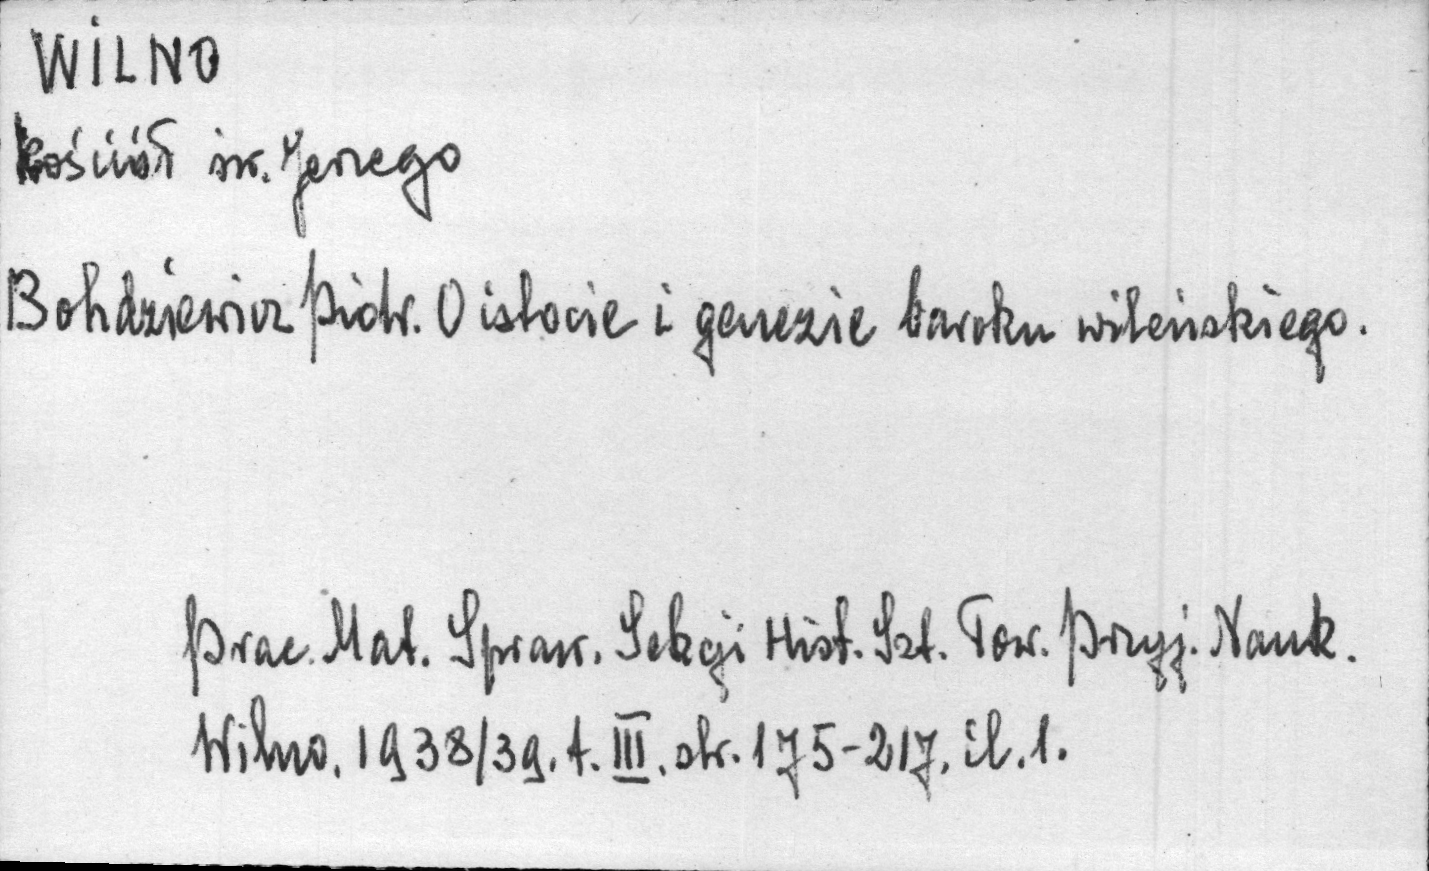 WILNO
Kościół św. Jerzego
Bohdziewicz Piotr. O istocie i genezie baroku wileńskiego.
Prac. Mat. Spraw. Sekcji Hist. Szt. Tow. Przyj. Nauk.
Wilno. 1938/39. t. III. str. 175-217. il. 1.